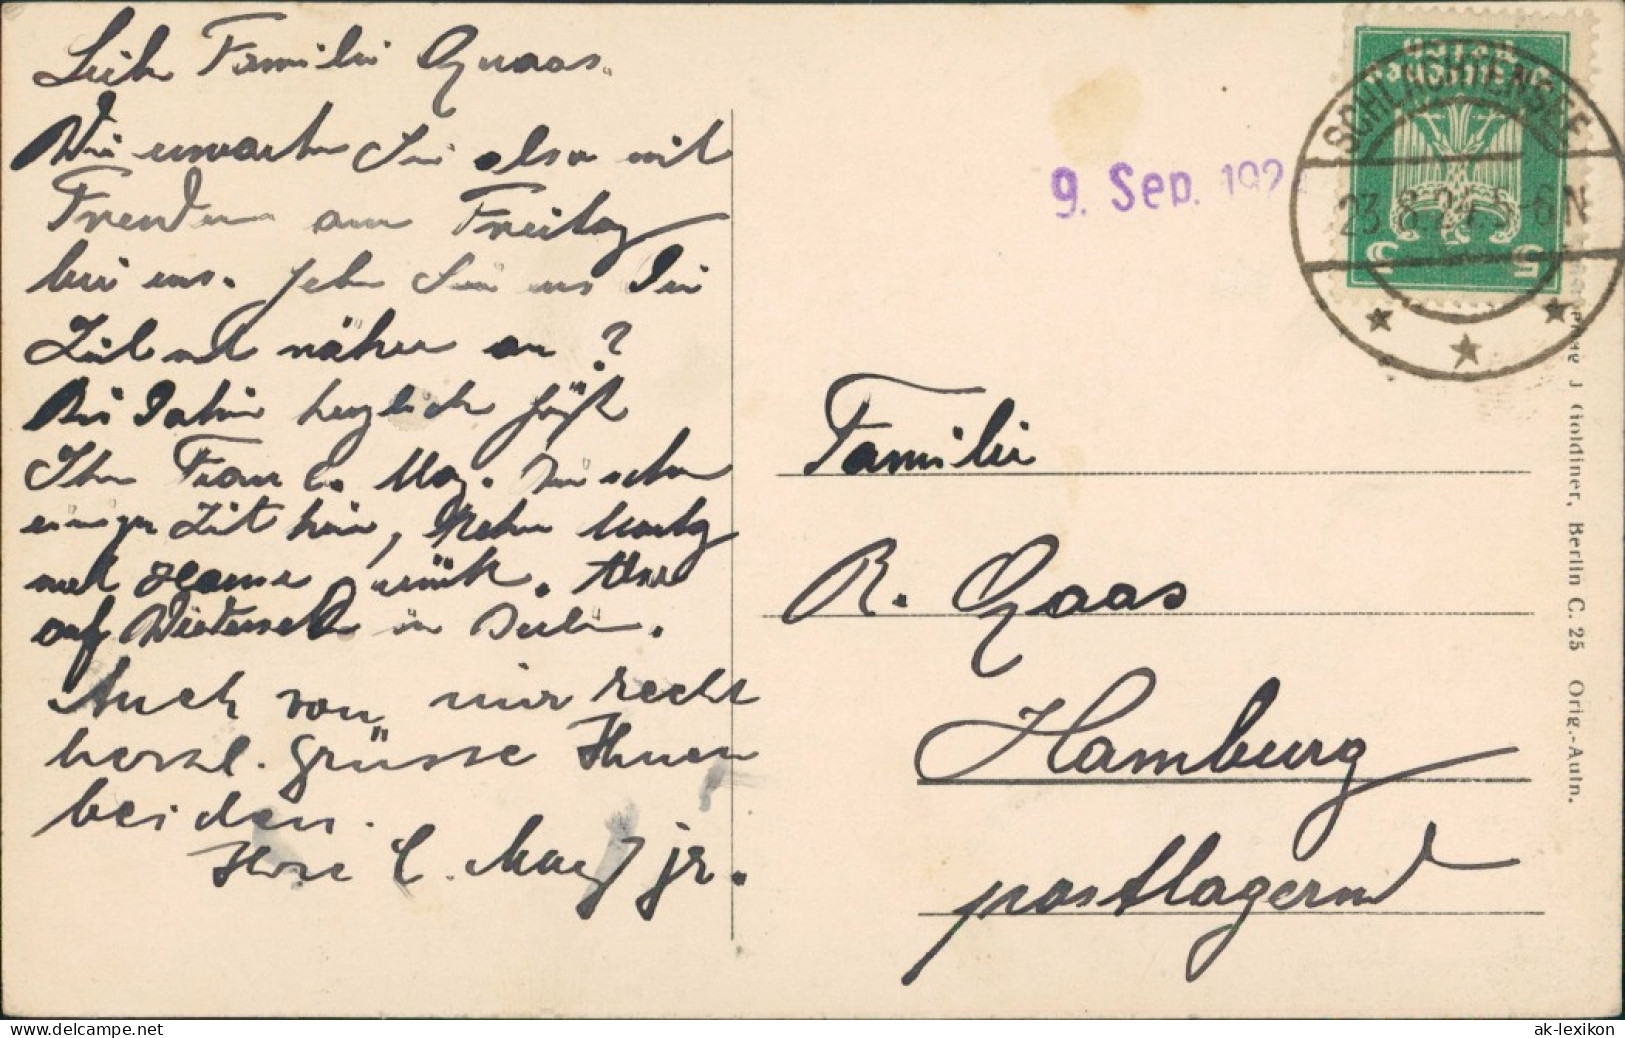 Liebe Familie Quaas.
Wir erwarten Sie also mit
Freuden am Freitag
bei uns. Geben Sie uns die
Zeit noch näher an?
Bis dahin herzlich grüßt
Ihre Frau C. May. Die schon
einige Zeit hier,
auf Wiedersehn in Berlin.
Auch von mir recht
herzl. Grüsse Ihnen
beiden.
Ihre C. May jr.
9. Sep. 192
Deutsches Reich
SCHLACHTENSEE
23.8.24.5-6N
5 5
Familie
R. Quaas
Hamburg
postlagernd
J. Goldiner, Berlin C. 25 Orig.-Aufn.
delcampe.net
ak-lexikon